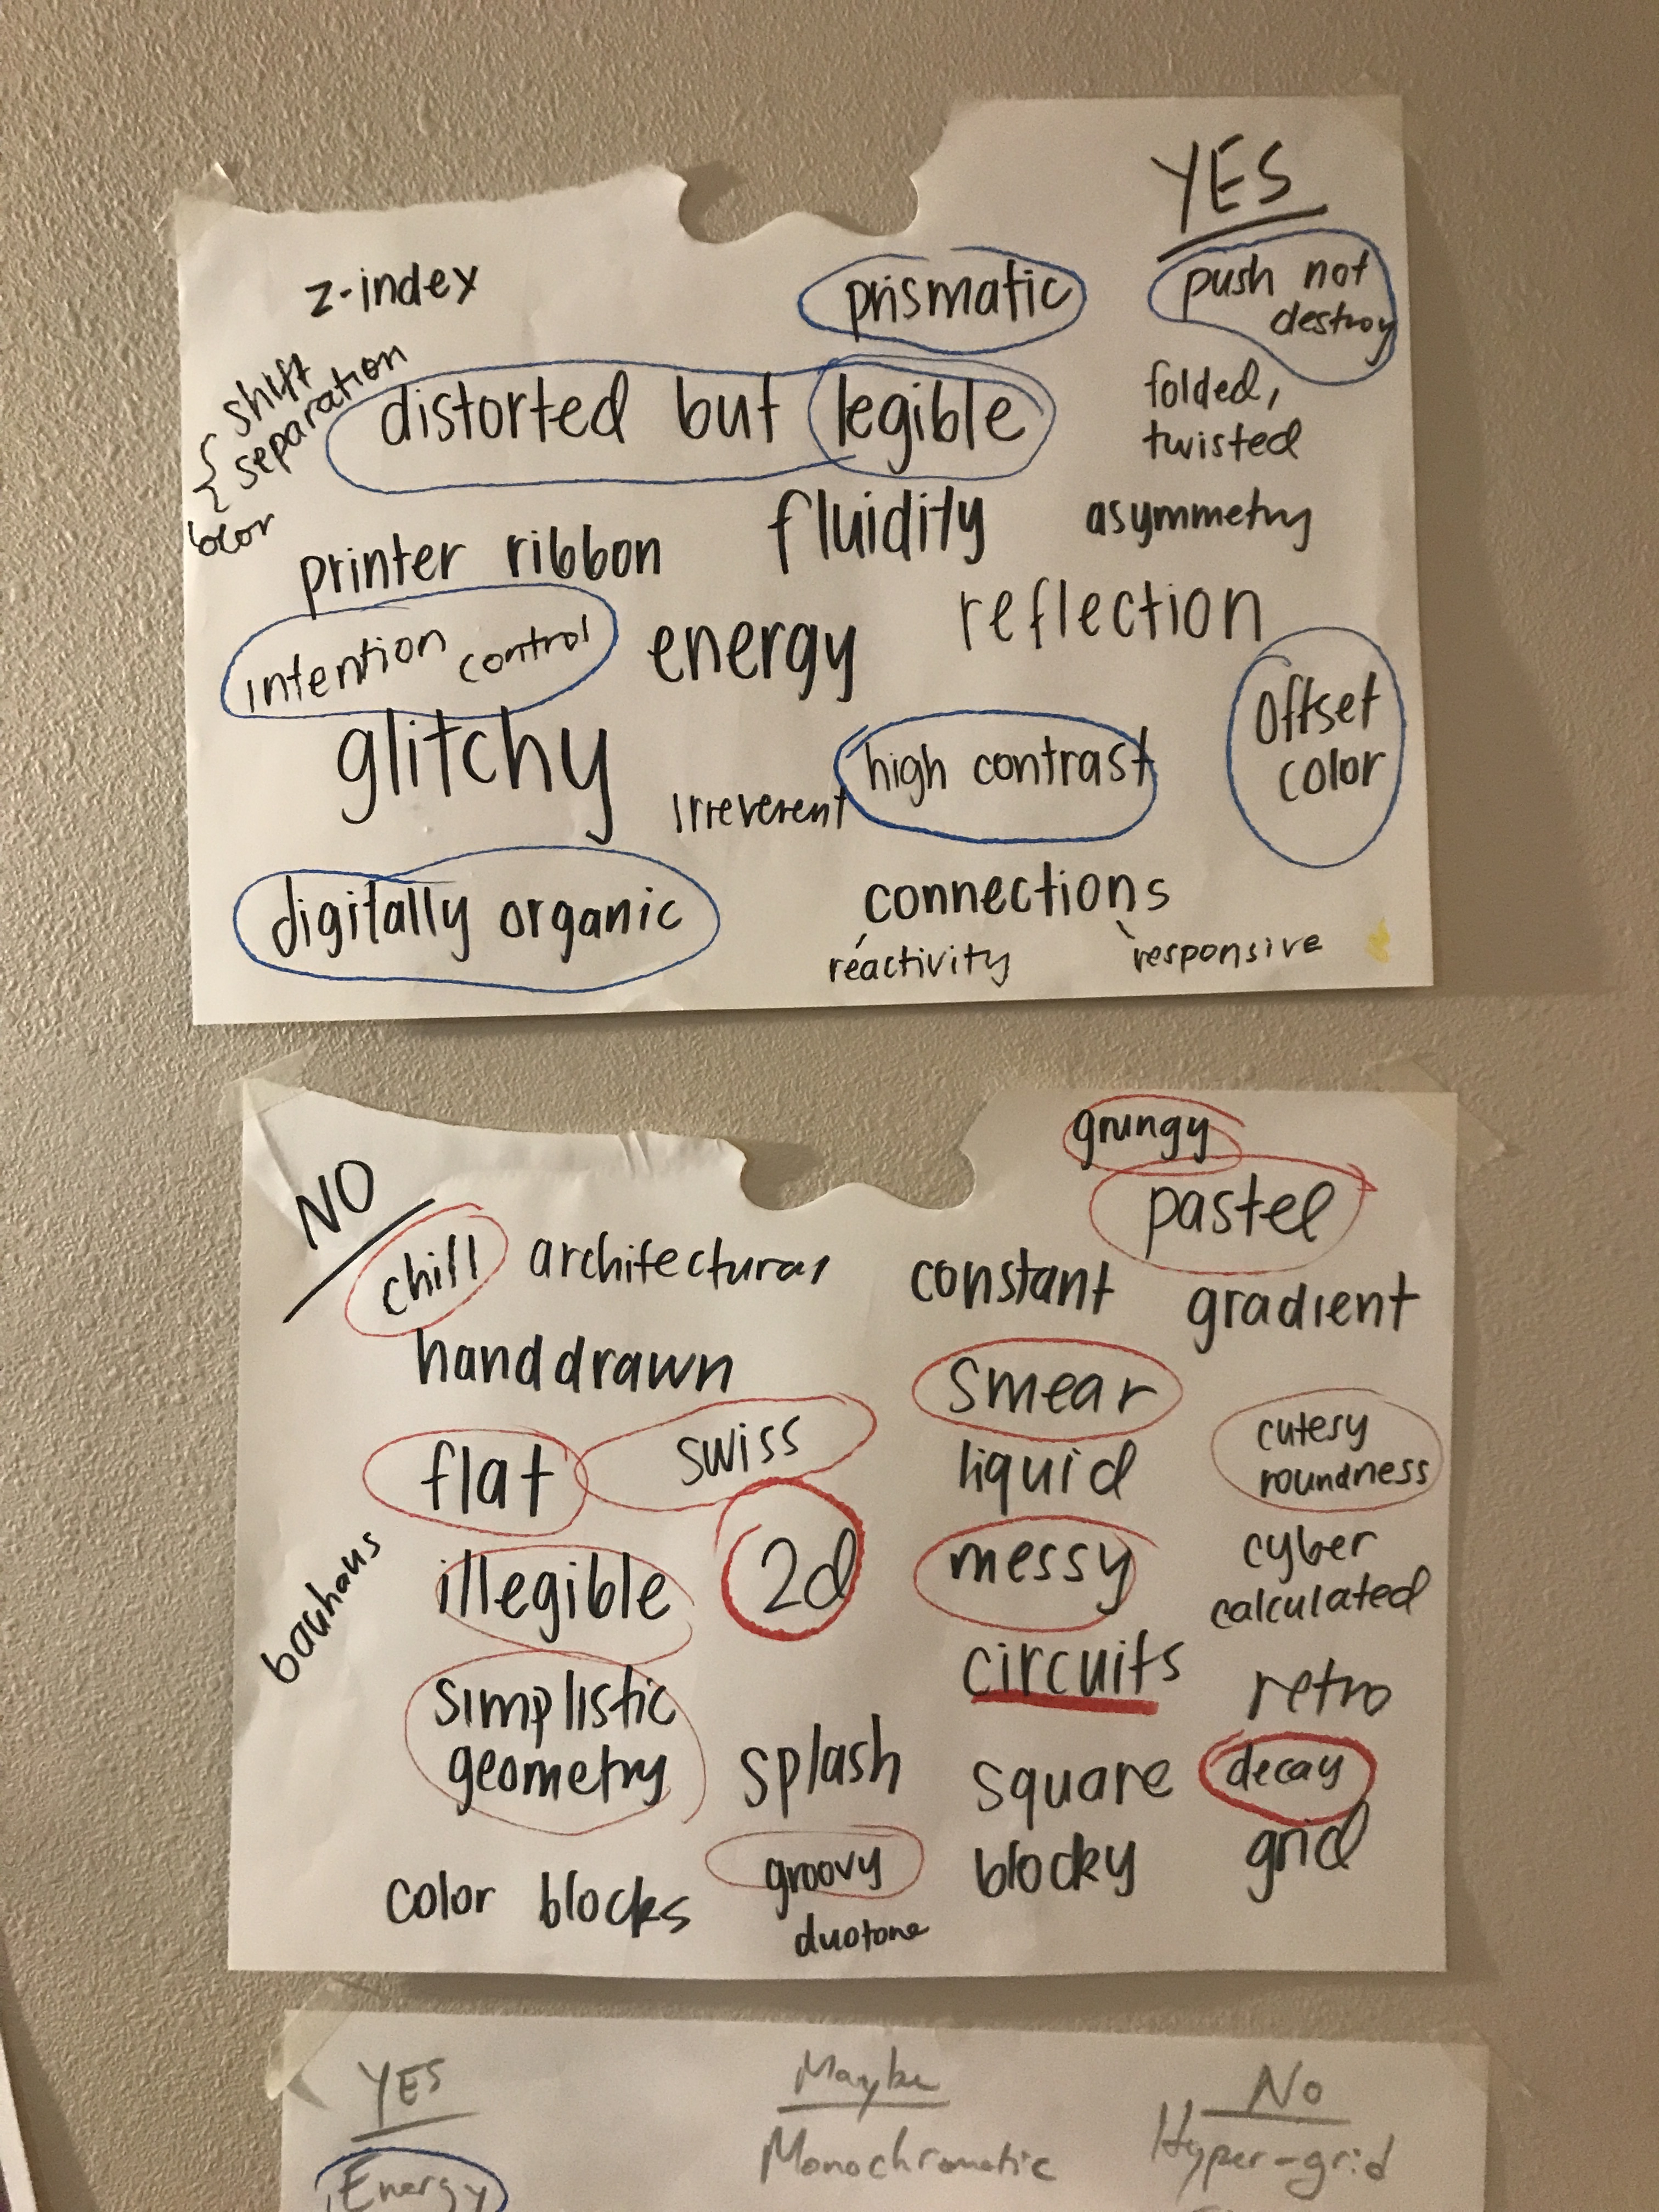 YES
z-index
prismatic
push not
destroy
shift
separation
color
distorted but legible
folded,
twisted
printer ribbon
fluidity
asymmetry
intention control
energy
reflection
glitchy
irreverent
high contrast
Offset
color
digitally organic
connections
reactivity
responsive
NO
grungy
pastel
chill
architectural
constant
gradient
handdrawn
smear
flat
swiss
liquid
cutesy
roundness
bauhaus
illegible
2d
messy
cyber
calculated
simplistic
geometry
circuits
retro
splash
square
decay
color blocks
groovy
blocky
grid
duotone
YES
Maybe
No
Energy
Monochromatic
Hyper-grid